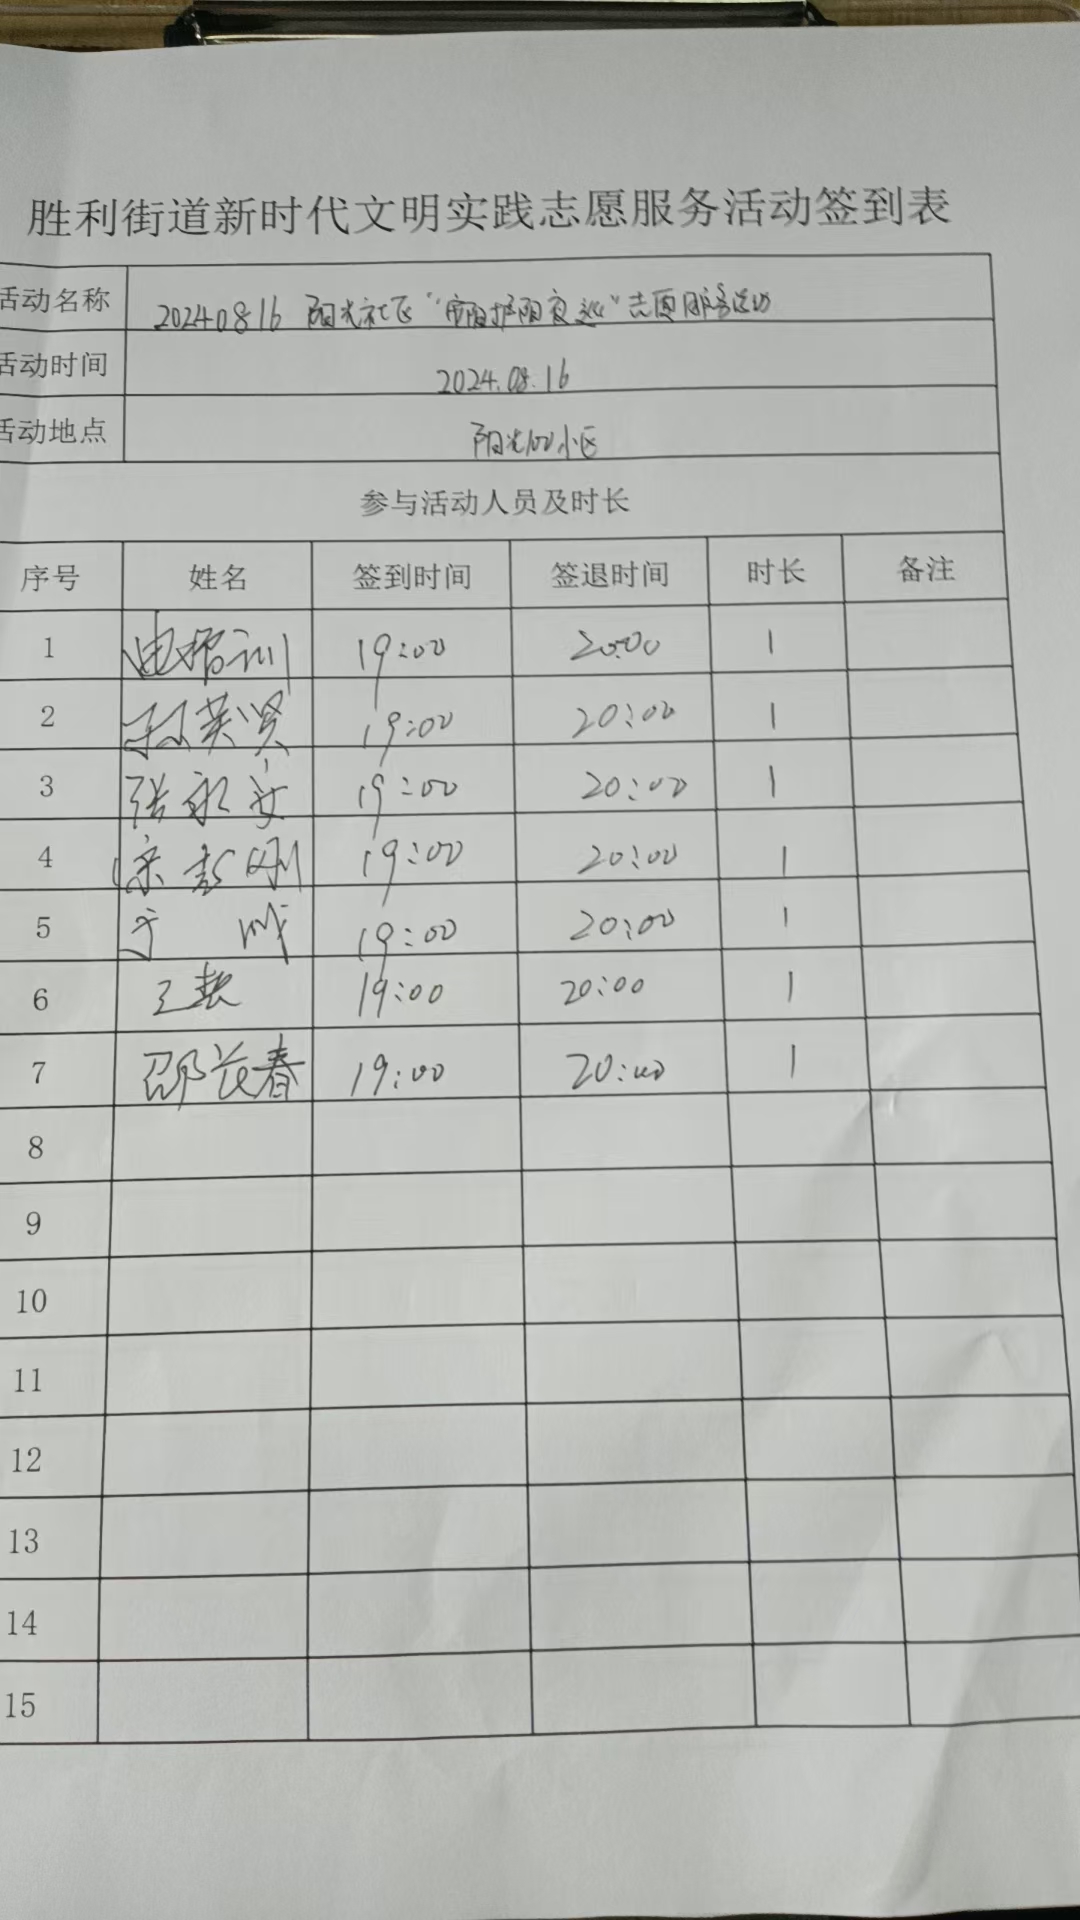 胜利街道新时代文明实践志愿服务活动签到表
活动名称 20240816 阳光社区“ 阳护阳夜巡”志愿服务活动
活动时间 2024.08.16
活动地点 阳光100小区
参与活动人员及时长
序号 姓名 签到时间 签退时间 时长 备注
1 19:00 20:00 1
2 孙英贤 19:00 20:00 1
3 张永安 19:00 20:00 1
4 宋彭刚 19:00 20:00 1
5 于 19:00 20:00 1
6 王 19:00 20:00 1
7 邵长春 19:00 20:00 1
8
9
10
11
12
13
14
15